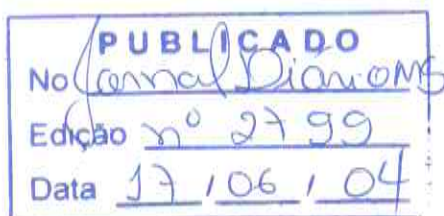 PUBLICADO
No Jornal Diário MS
Edição nº 2799
Data 17 / 06 / 04